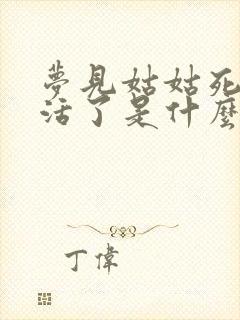 夢見姑姑死
活了是什麼
丁偉